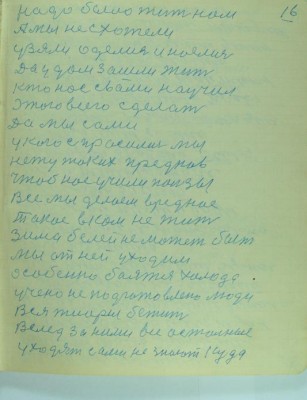 надо было жит нам 16
А мы не схотели
узяли оделия и поелия
Да у дом зашли жит
кто нас свами научил
этого всего сделат
Да мы сами
у кого спрасилиса мы
нету таких преднов
чтоб нас учили
Все мы делаем вредное
Такое вком не жит
Зима белей не может быт
мы от ней уходим
особенно баятся холода
учено не подготовлено люди
Вся бежит
Вслед за ними все астальные
уходят сами не знают куда